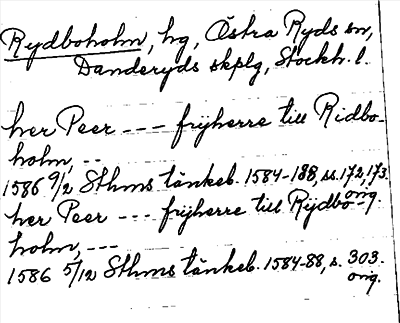 Rydboholm, hg, Östra Ryds sn,
Danderyds skplg, Stockh. l.
her Peer --- friherre till Ridbo-
holm, --
1586 9/2 Sthms tänkeb. 1584-188, ss. 172, 173.
orig.
her Peer --- frijherre till Rydbo-
holm, ---
1586 5/12 Sthms tänkeb. 1584-88, s. 303.
orig.